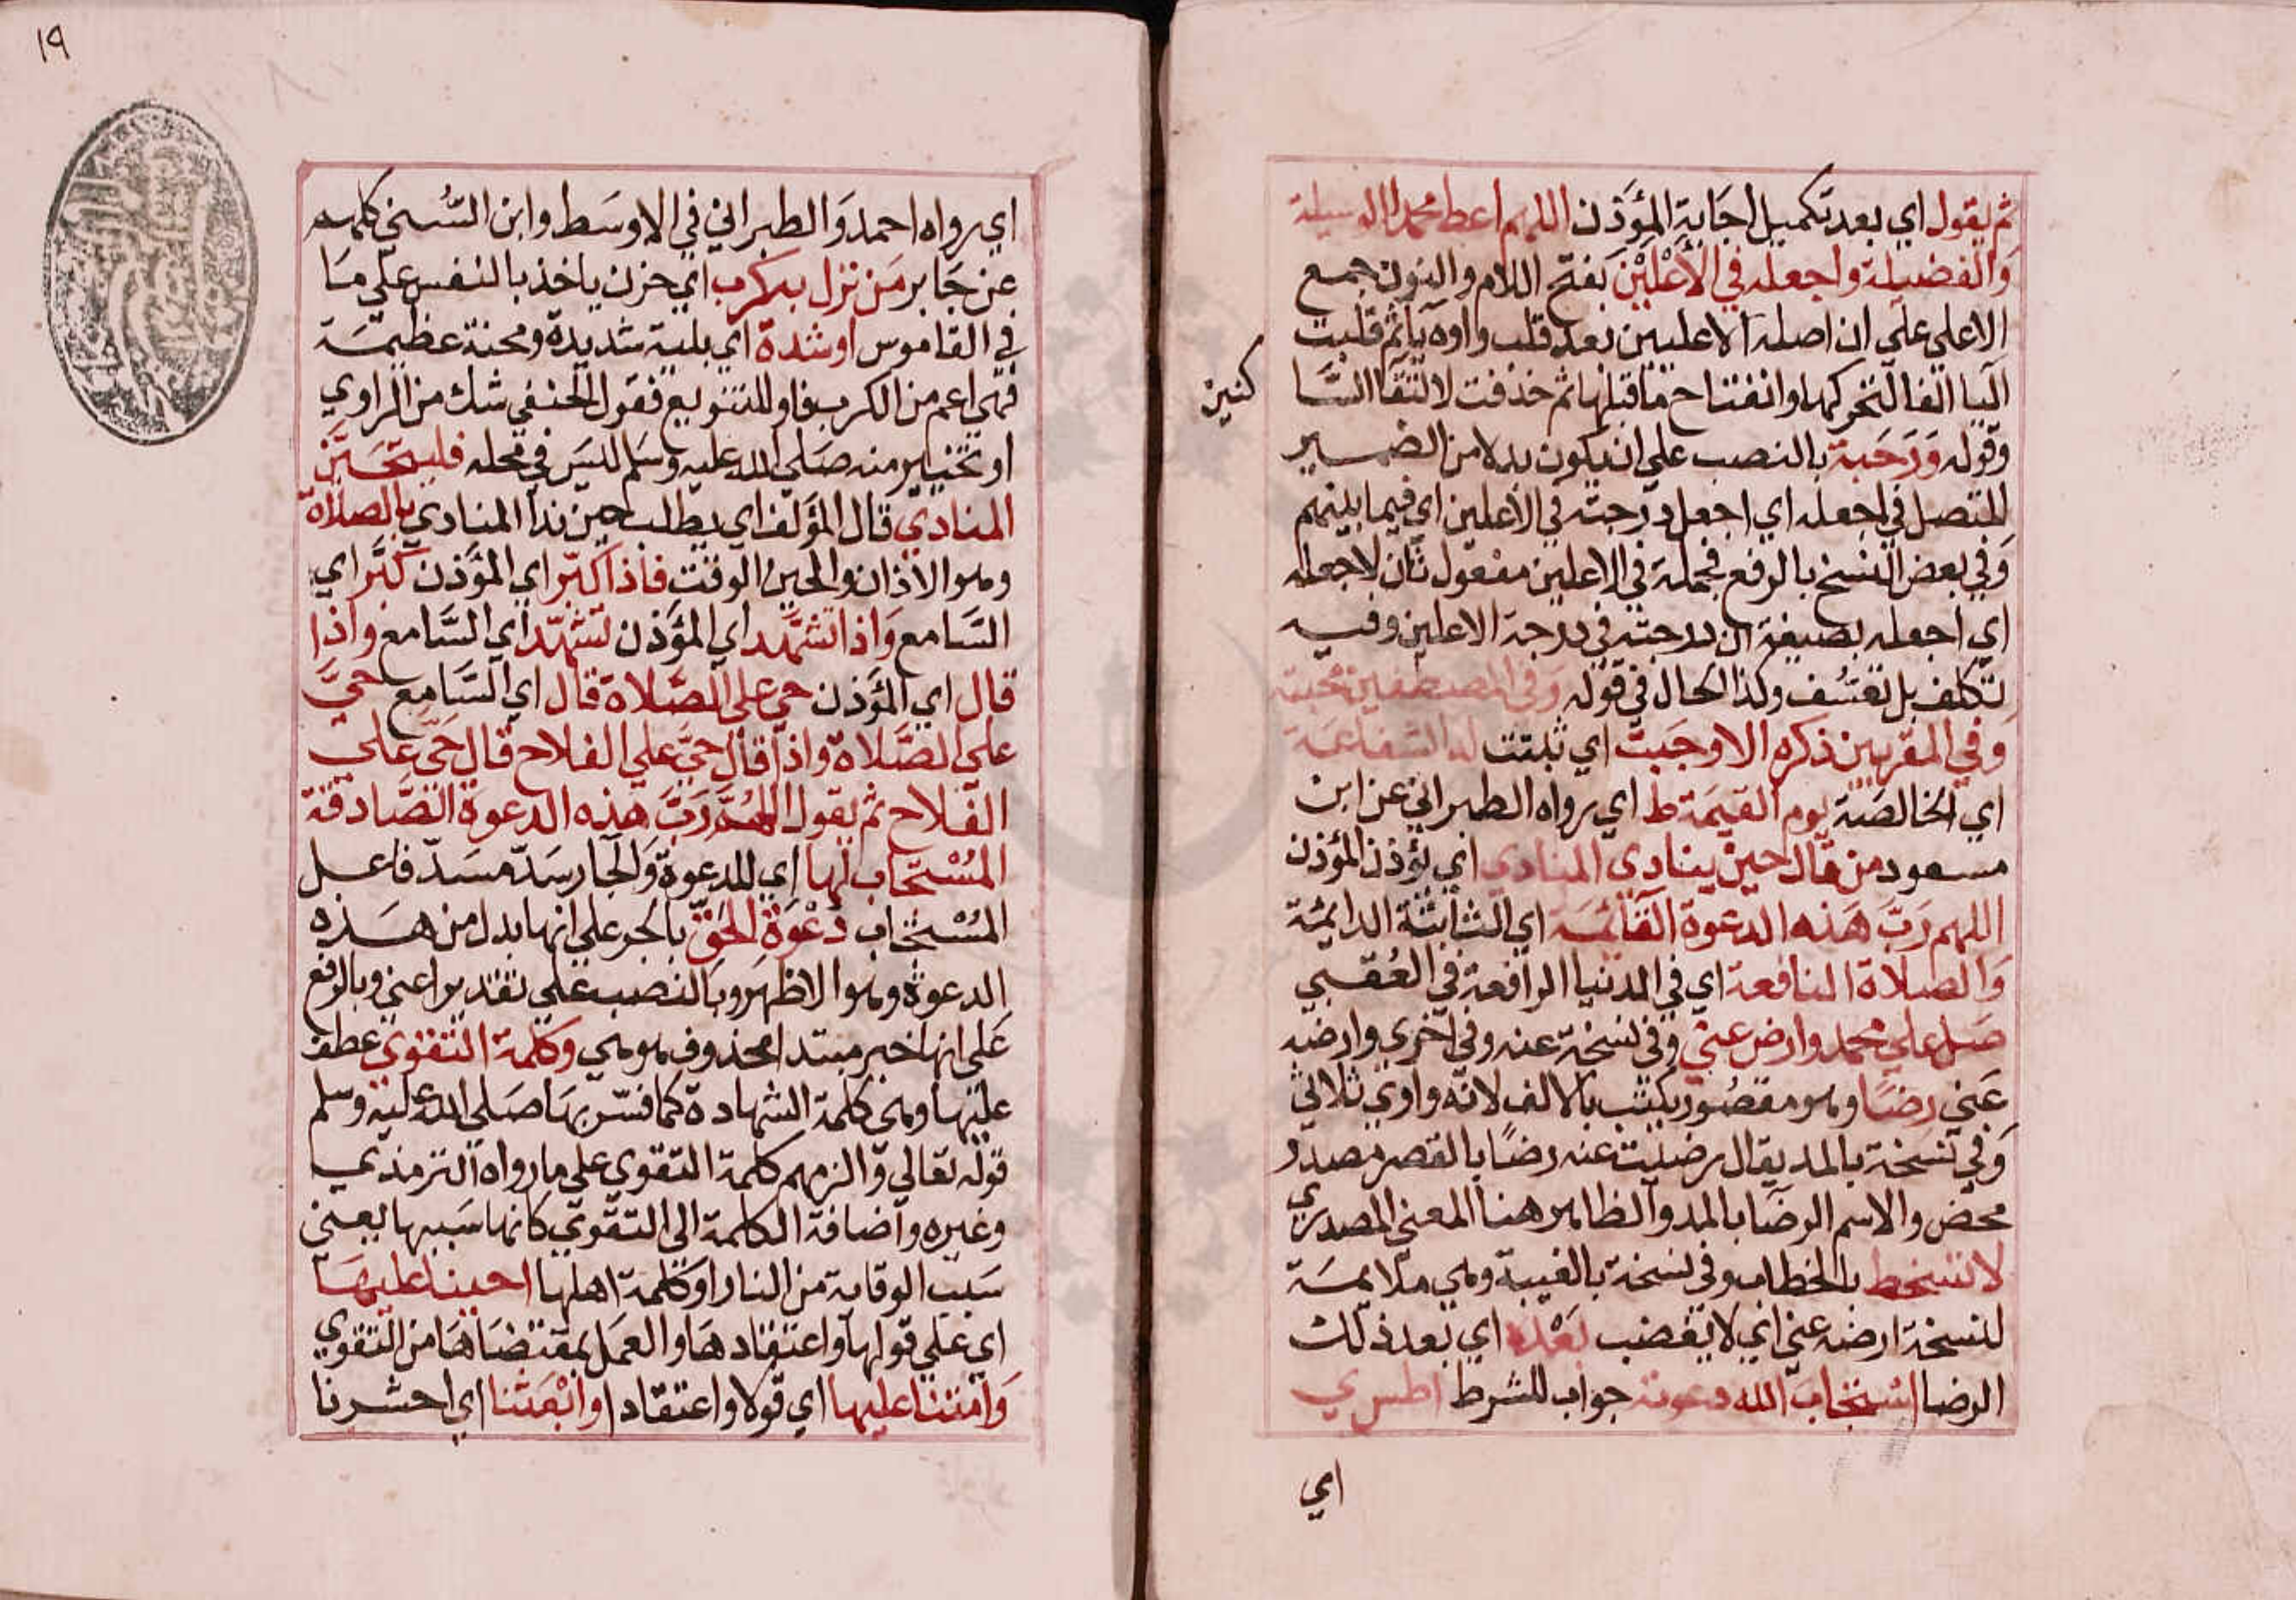 ثم يقول اي بعد تكميل اجابة المؤذن اللهم اعط محمدا الوسيلة
والفضيلة واجعله في الأعلين بفتح اللام والنون جمع
الاعلي علي ان اصله الاعليين بعد قلب واوه يا ثم قلبت
اليا الفا لتحركها وانفتاح ما قبلها ثم حذفت لالتقا السا
كنين
وقوله ودرجته بالنصب علي ان يكون بدلا من الضمير
المتصل في اجعله اي اجعل درجته في الأعلين اي فيما بينهم
وفي بعض النسخ بالرفع فجملة في الاعلين مفعول ثان لاجعله
اي اجعله بصيغة ان درجته في درجة الاعلين وفيه
تكلف بل تعسف وكذا الحال في قوله وفي المصطفين محبته
وفي المقربين ذكره الا وجبت اي ثبتت له الشفاعة
اي الخالصة يوم القيمة ط اي رواه الطبراني عن ابن
مسعود من قال حين ينادي المنادي اي يؤذن المؤذن
اللهم رب هذه الدعوة القائمة اي الثابتة الدائمة
والصلاة النافعة اي في الدنيا الرافعة في العقبي
صل علي محمد وارض عني وفي نسخة عنه وفي اخري وارضه
عني رضا وهو مقصور يكتب بالالف لانه واوي ثلاثي
وفي نسخة بالمد يقال رضيت عنه رضا بالقصر مصدر
محض والاسم الرضا بالمد والظاهر هنا المعني المصدري
لا تسخط بالخطاب وفي نسخة بالغيبة وهي ملايمة
لنسخة ارضه عني اي لا يغضب بعده اي بعد ذلك
الرضا استجاب الله دعوته جواب للشرط اطس ي
اي
١٩
اي رواه احمد والطبراني في الاوسط وابن السني كلهم
عن جابر من نزل به كرب اي حزن ياخذ بالنفس علي ما
في القاموس او شدة اي بلية شديدة ومحنة عظيمة
فهي اعم من الكرب فاو للتنويع فقول الحنفي شك من الراوي
او تخيير منه صلي الله عليه وسلم ليس في محله فليتحين
المنادي قال المؤلف اي يطلب حين ندا المنادي بالصلاة
وهو الاذان والحين الوقت فاذا كبر اي المؤذن كبر اي
السامع واذا تشهد اي المؤذن تشهد اي السامع واذا
قال اي المؤذن حي علي الصلاة قال اي السامع حي
علي الصلاة واذا قال حي علي الفلاح قال حي علي
الفلاح ثم يقول اللهم رب هذه الدعوة الصادقة
المستجاب لها اي للدعوة والجار سد مسد فاعل
المستجاب دعوة الحق بالجر علي انها بدل من هذه
الدعوة وهو الاظهر وبالنصب علي تقدير اعني وبالرفع
علي انها خبر مبتدا محذوف هو هي وكلمة التقوي عطف
عليها وهي كلمة الشهادة كما فسر بها صلي الله عليه وسلم
قوله تعالي والزمهم كلمة التقوي علي ما رواه الترمذي
وغيره واضافة الكلمة الي التقوي كانها سببها يعني
سبب الوقاية من النار او كلمة اهلها احينا عليها
اي علي قولها واعتقادها والعمل بمقتضاها من التقوي
وامتنا عليها اي قولا واعتقادا وابعثنا اي احشرنا